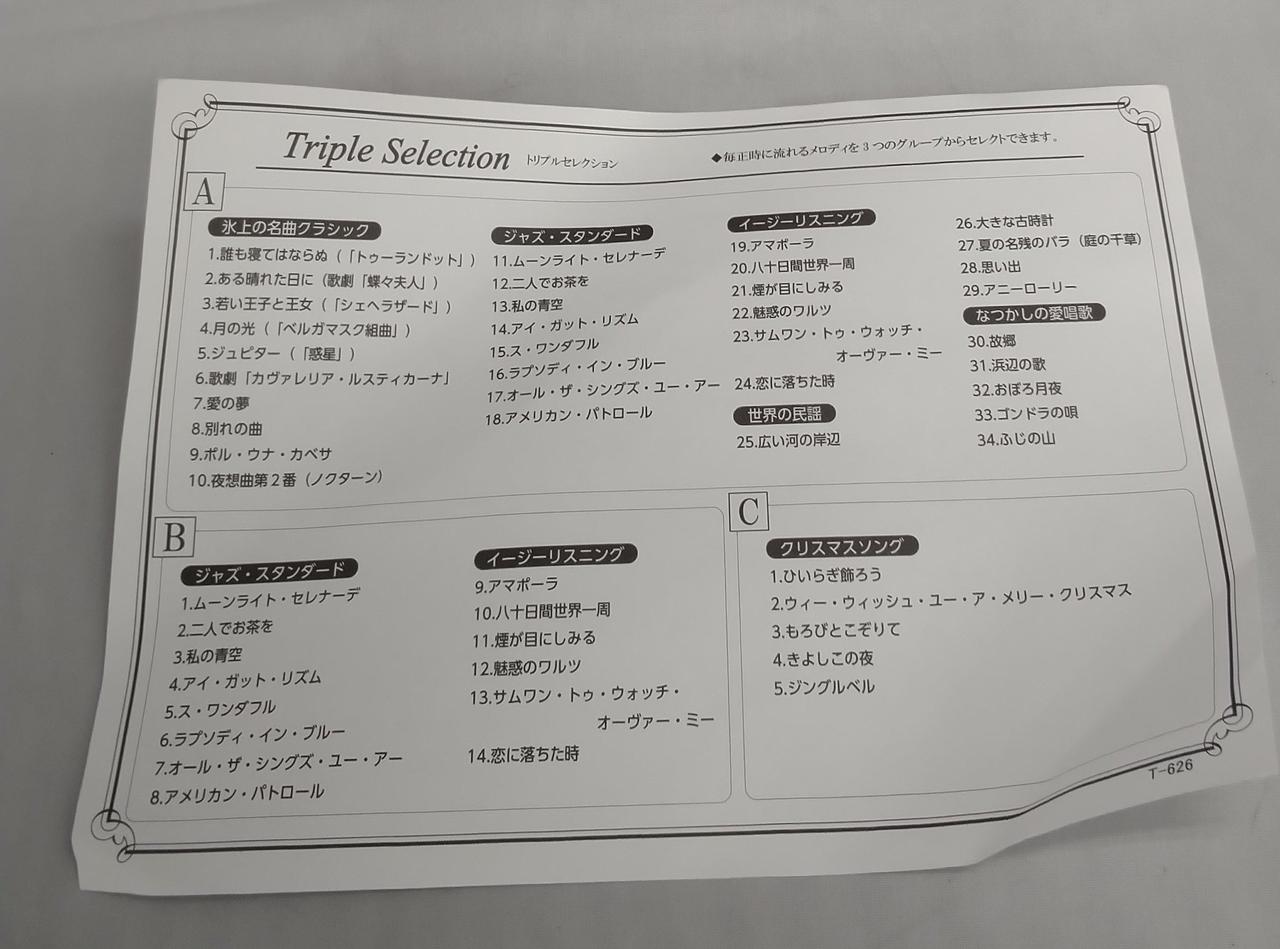 Triple Selection トリプルセレクション
◆毎正時に流れるメロディを3つのグループからセレクトできます。
A
氷上の名曲クラシック
1.誰も寝てはならぬ（「トゥーランドット」）
2.ある晴れた日に（歌劇「蝶々夫人」）
3.若い王子と王女（「シェヘラザード」）
4.月の光（「ベルガマスク組曲」）
5.ジュピター（「惑星」）
6.歌劇「カヴァレリア・ルスティカーナ」
7.愛の夢
8.別れの曲
9.ポル・ウナ・カベサ
10.夜想曲第2番（ノクターン）
ジャズ・スタンダード
11.ムーンライト・セレナーデ
12.二人でお茶を
13.私の青空
14.アイ・ガット・リズム
15.ス・ワンダフル
16.ラプソディ・イン・ブルー
17.オール・ザ・シングズ・ユー・アー
18.アメリカン・パトロール
イージーリスニング
19.アマポーラ
20.八十日間世界一周
21.煙が目にしみる
22.魅惑のワルツ
23.サムワン・トゥ・ウォッチ・
オーヴァー・ミー
24.恋に落ちた時
世界の民謡
25.広い河の岸辺
26.大きな古時計
27.夏の名残のバラ（庭の千草）
28.思い出
29.アニーローリー
なつかしの愛唱歌
30.故郷
31.浜辺の歌
32.おぼろ月夜
33.ゴンドラの唄
34.ふじの山
B
ジャズ・スタンダード
1.ムーンライト・セレナーデ
2.二人でお茶を
3.私の青空
4.アイ・ガット・リズム
5.ス・ワンダフル
6.ラプソディ・イン・ブルー
7.オール・ザ・シングズ・ユー・アー
8.アメリカン・パトロール
イージーリスニング
9.アマポーラ
10.八十日間世界一周
11.煙が目にしみる
12.魅惑のワルツ
13.サムワン・トゥ・ウォッチ・
オーヴァー・ミー
14.恋に落ちた時
C
クリスマスソング
1.ひいらぎ飾ろう
2.ウィー・ウィッシュ・ユー・ア・メリー・クリスマス
3.もろびとこぞりて
4.きよしこの夜
5.ジングルベル
T-626